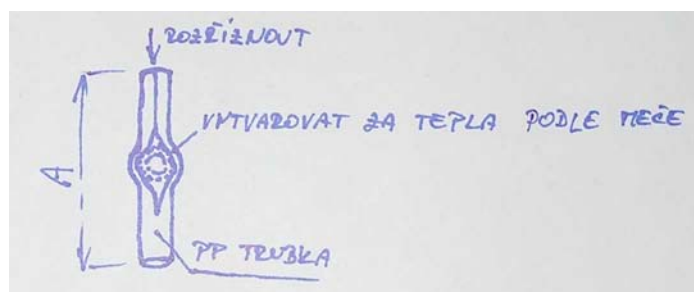 ROZŘÍZNOUT
VYTVAROVAT ZA TEPLA PODLE MEČE
A
PP TRUBKA